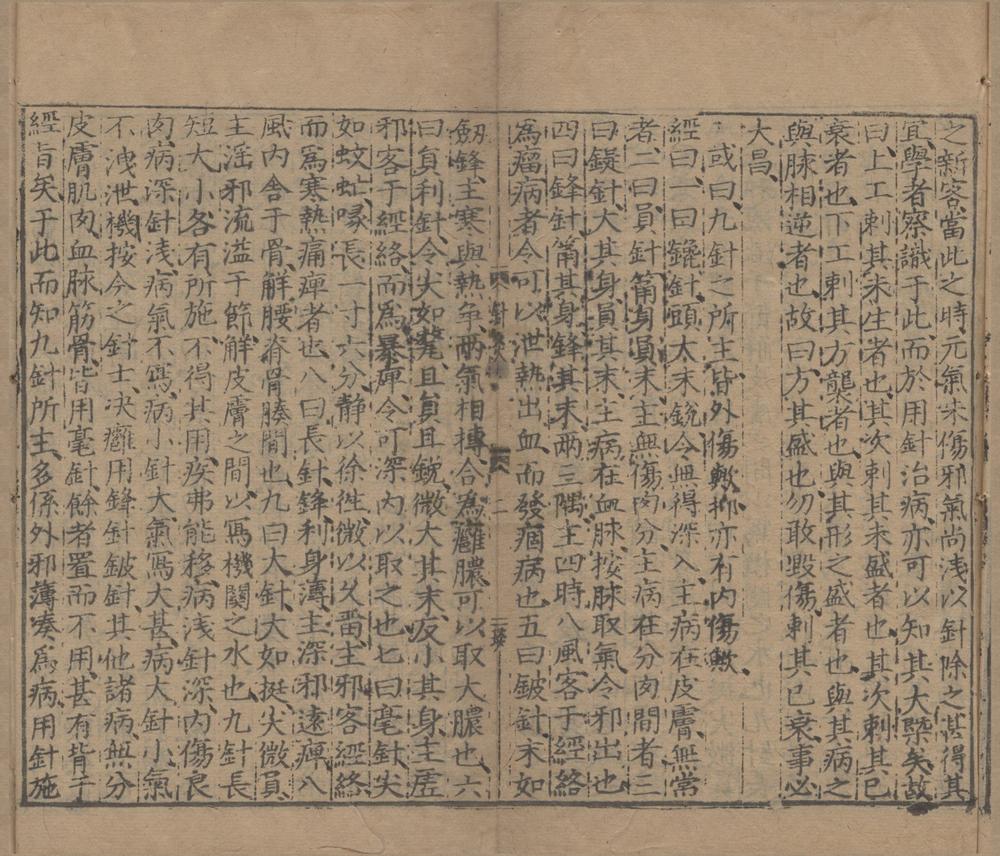 之新客當此之時元氣未傷邪氣尚浅以針除之甚得其
宜學者察識于此而於用針治病亦可以知其大槩矣故
曰上工刺其未生者也其次刺其未盛者也其次刺其已
衰者也下工刺其方襲者也與其形之盛者也與其病之
與脉相逆者也故曰方其盛也勿敢毀傷刺其已衰事必
大昌
或曰九針之所主皆外傷歟抑亦有内傷歟
經曰一曰鑱針頭大末銳令無得深入主病在皮膚無常
者二曰員針筩身員末主無傷肉分主病在分肉間者三
曰鍉針大其身員其末主病在血脉按脉取氣令邪出也
四曰鋒針筩其身鋒其末兩三隅主四時八風客于經絡
為瘤病者令可以泄熱出血而發痼病也五曰鈹針末如
二
劔鋒主寒與熱争兩氣相搏合為癰膿可以取大膿也六
曰員利針令尖如氂且員且銳微大其末反小其身主虗
邪客于經絡而為暴痺令可深内以取之也七曰毫針尖
如蚊虻喙長一寸六分静以徐徃微以久留主邪客經絡
而為寒熱痛痺者也八曰長針鋒利身薄主深邪遠痺八
風内舎于骨解腰脊骨腠間也九曰大針大如挺尖微員
主淫邪流溢于節解皮膚之間以寫機關之水也九針長
短大小各有所施不得其用疾弗能移病浅針深内傷良
肉病深針浅病氣不寫病小針大氣寫大甚病大針小氣
不洩泄襪按今之針士决癰用鋒針鈹針其他諸病無分
皮膚肌肉血脉筋骨皆用毫針餘者置而不用甚有背于
經旨矣于此而知九針所主多係外邪薄凑為病用針施